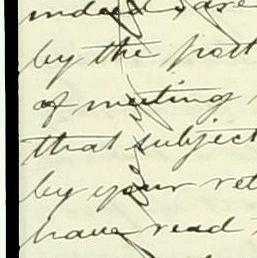 indeed, are
by the post
of meeting
that subject
by your ret
have read